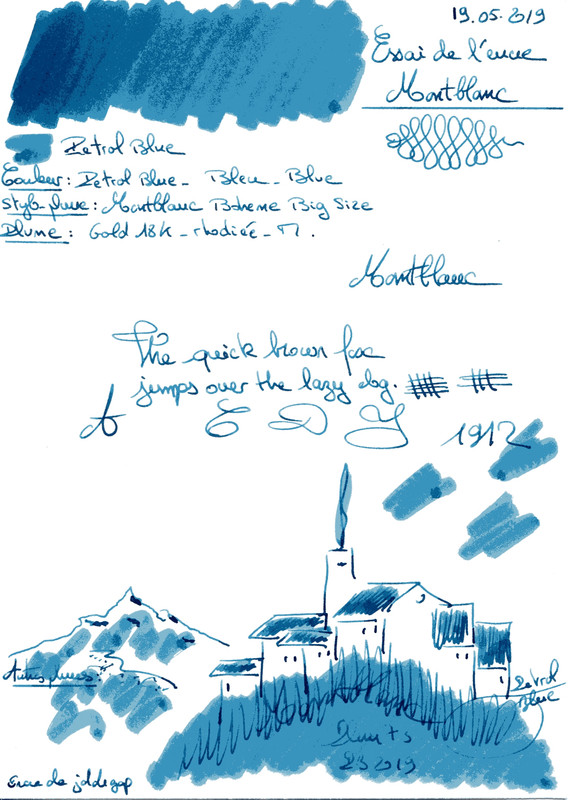 19.05.2019
Essai de l'encre
Montblanc
Petrol Blue
Couleur : Petrol Blue - Bleu - Blue
Stylo-plume : Montblanc Boheme Big Size
Plume : Gold 18K - rhodiée - M .
Montblanc
The quick brown fox
jumps over the lazy dog.
A E D J 1912
Autres plumes
Petrol
Blue
2019